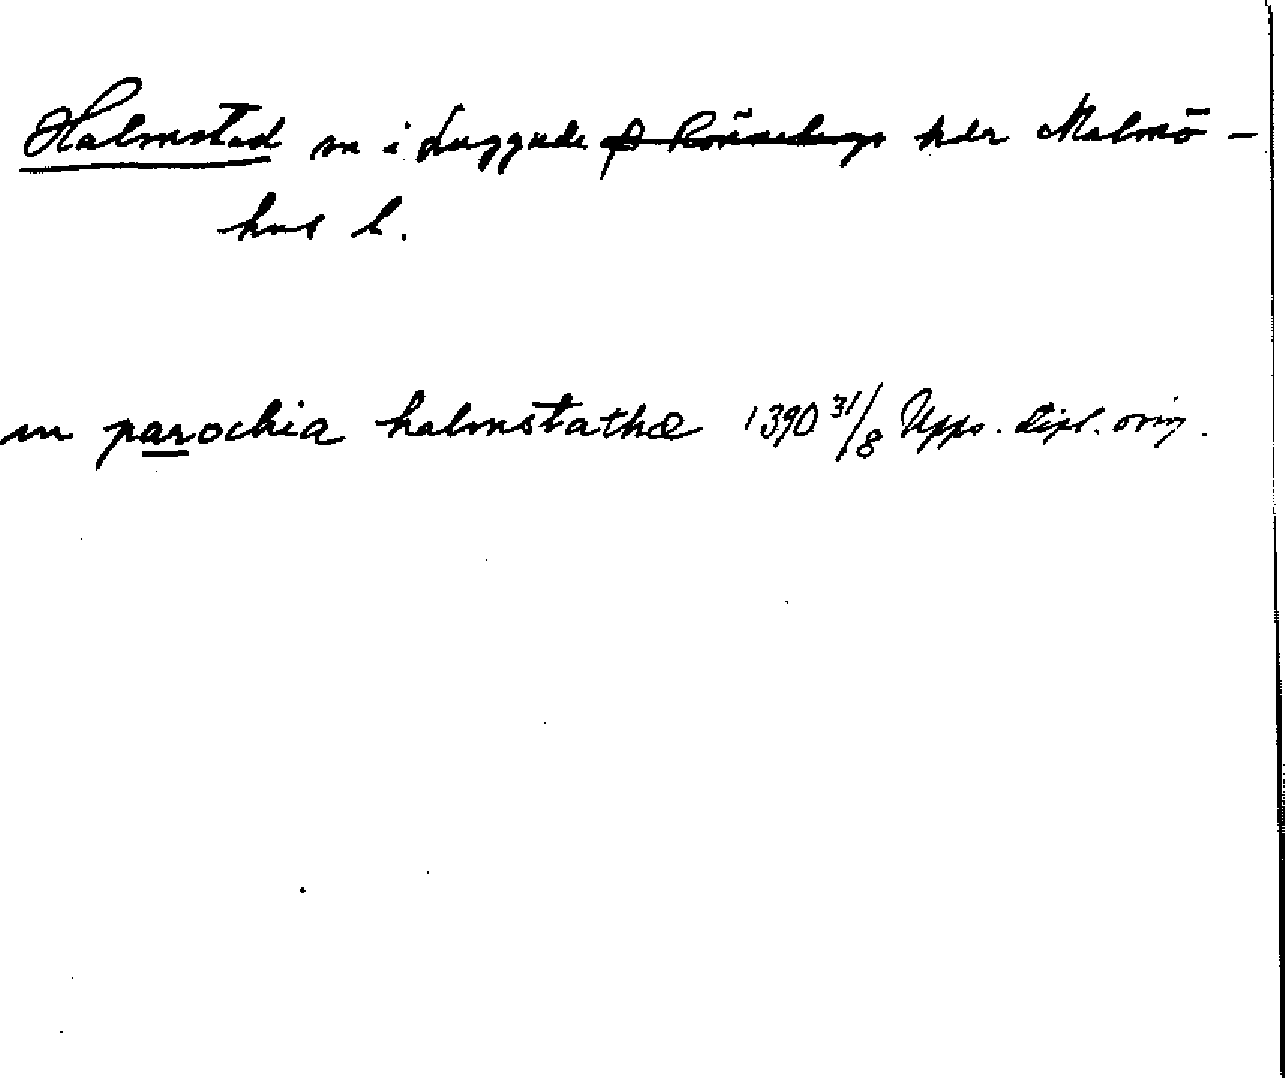 Halmstad sn i Luggude o Rönnebergs hdr Malmö-
hus l.
in parochia halmstathæ 1390 31/8 Upps. dipl. orig.